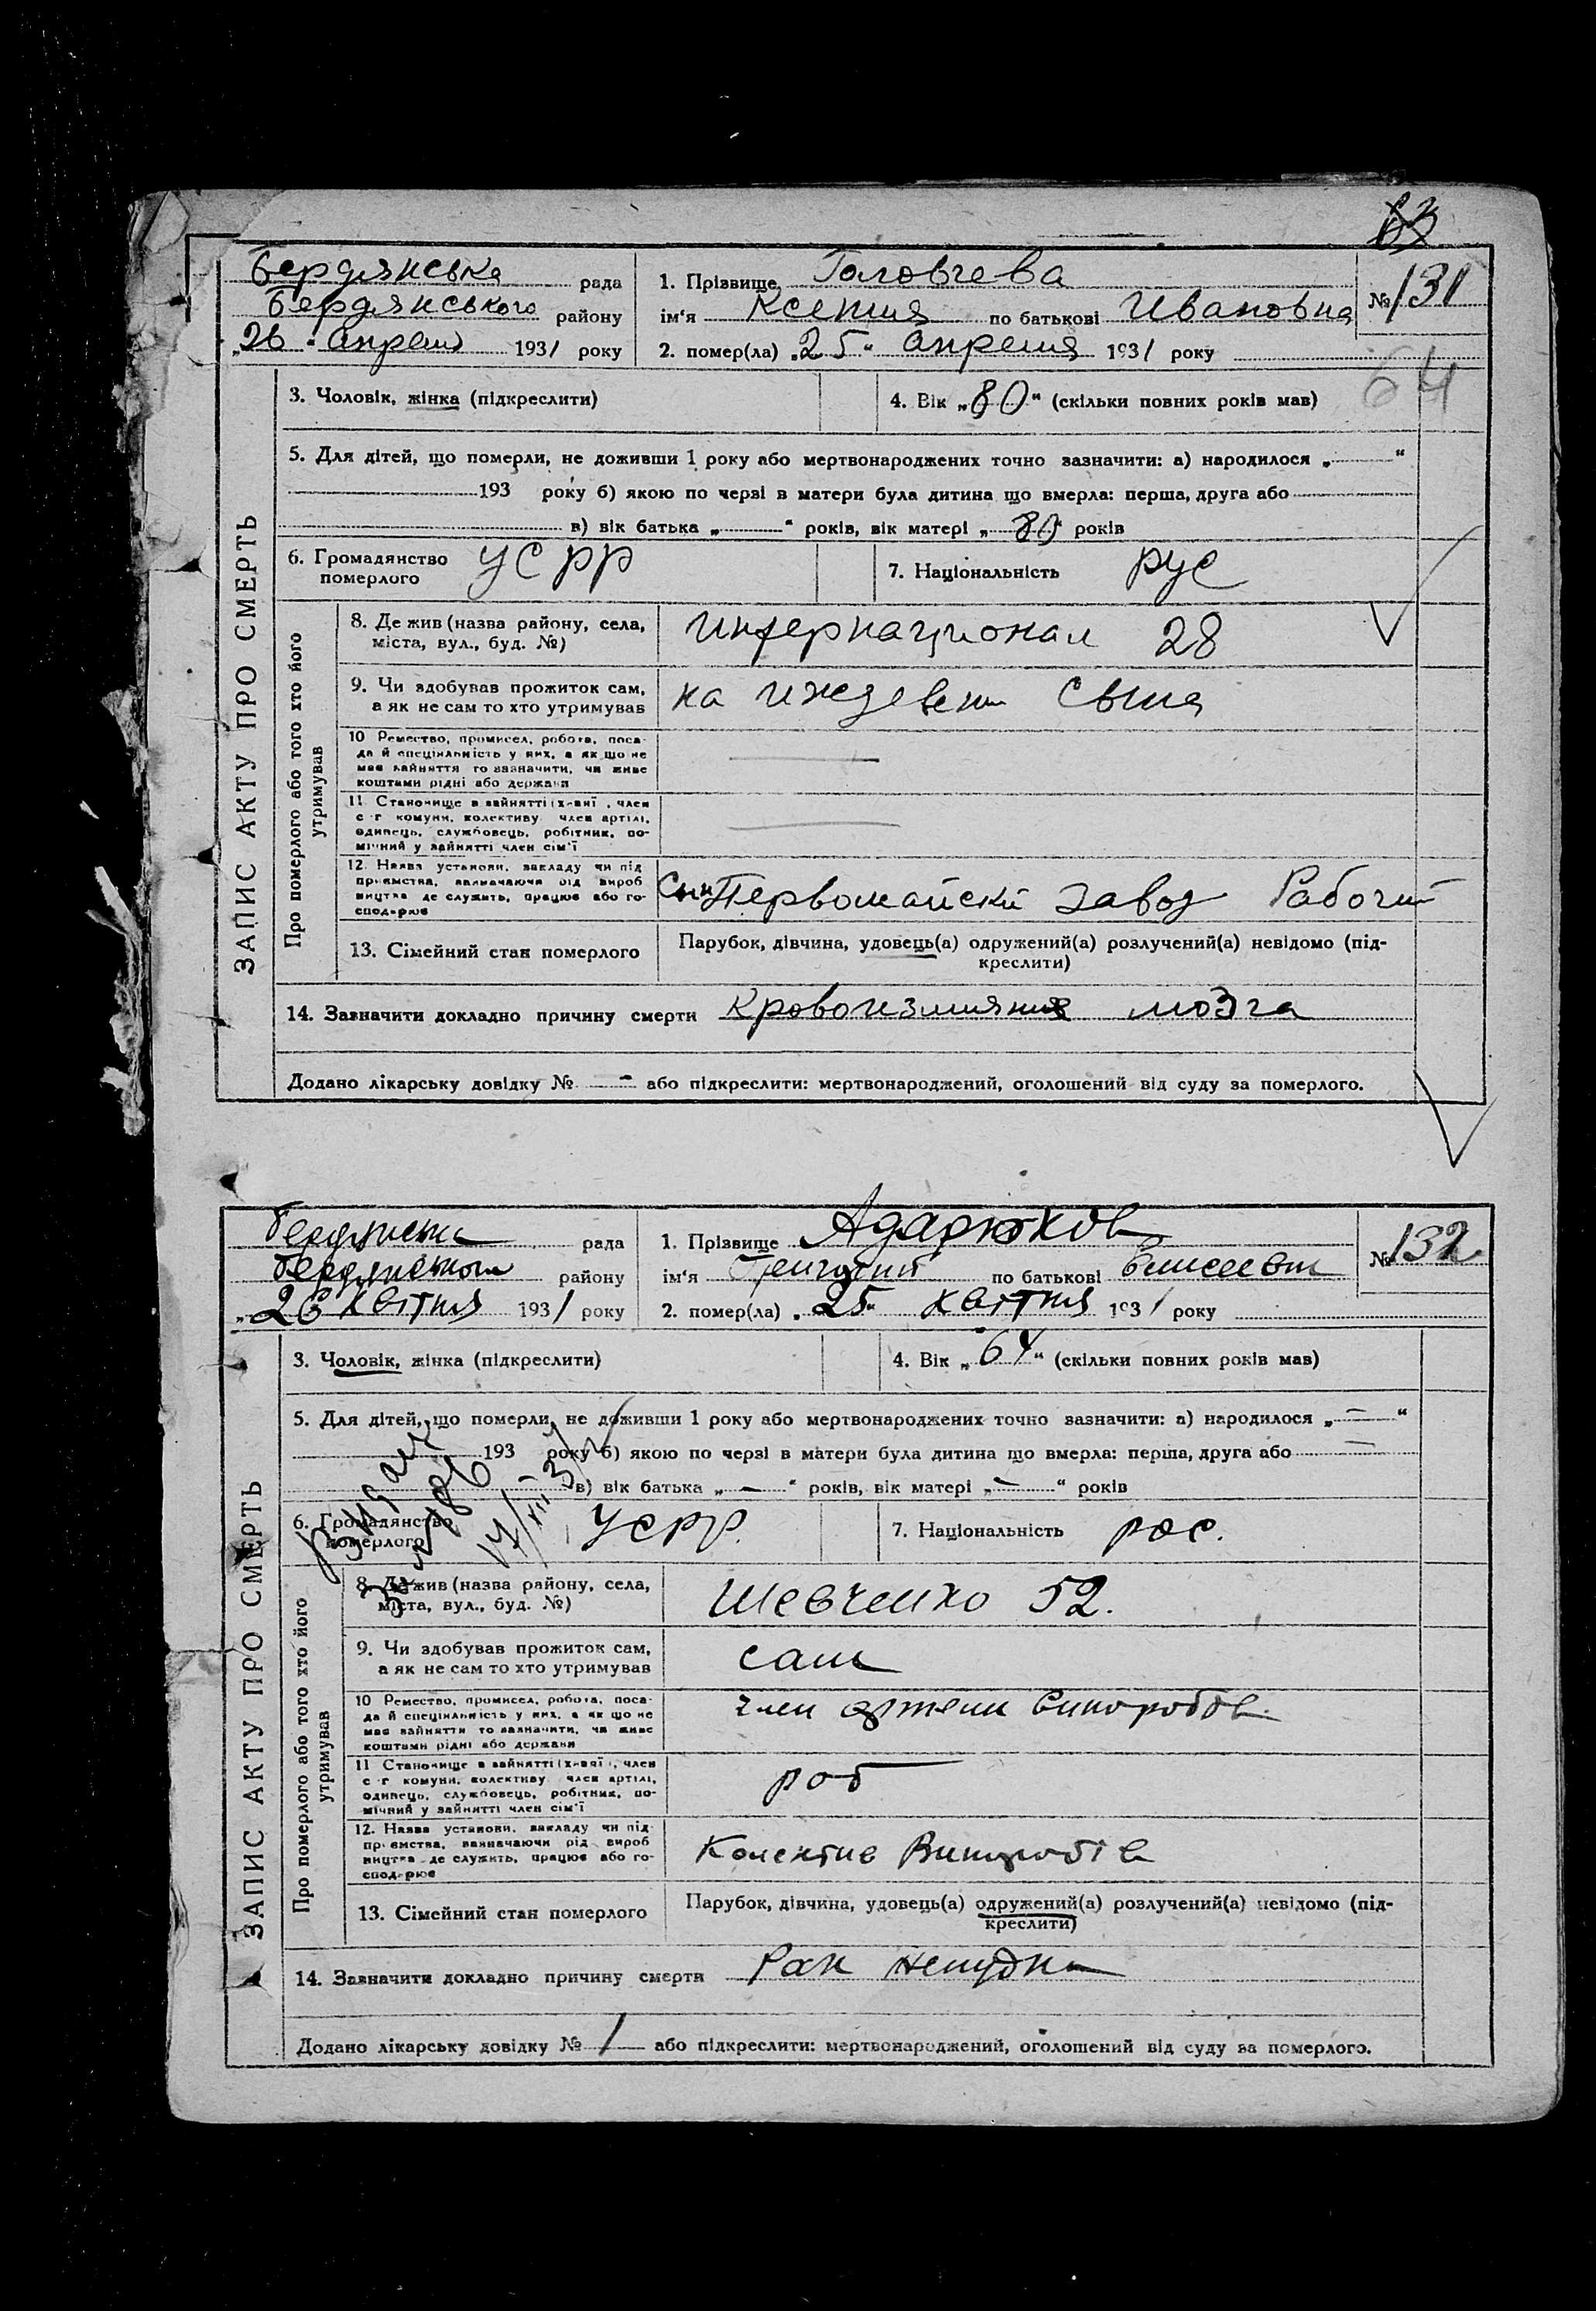 Бердянська рада
Бердянського району
„26" апреля 1931 року
1. Прізвище Головчева
ім'я Ксения по батькові Ивановна
2. помер(ла) „25" апреля 1931 року
№ 131
64
3. Чоловік, жінка (підкреслити)
4. Вік „80" (скільки повних років мав)
5. Для дітей, що померли, не доживши 1 року або мертвонароджених точно зазначити: а) народилося „ "
193 року б) якою по черзі в матери була дитина що вмерла: перша, друга або
в) вік батька „ " років, вік матері „80" років
6. Громадянство
померлого
УСРР
7. Національність рус
ЗАПИС АКТУ ПРО СМЕРТЬ
Про померлого або того хто його
утримував
8. Де жив (назва району, села,
міста, вул., буд. №)
Интернационал 28
9. Чи здобував прожиток сам,
а як не сам то хто утримував
на иждевени сына
10 Ремество, промисел, робота, поса-
да й спеціяльність у них, а як що не
має зайняття то зазначити, чи живе
коштами рідні або держави
11 Становище в зайнятті (хазяї), член
с-г комуни, колективу член артілі,
одинець, службовець, робітник, по-
мічний у зайнятті член сім'ї
12. Назва установи, закладу чи під
приємства, зазначаючи рід вироб
ництва де служить, працює або го-
сподарює
Сын Первомайски завод Рабочий
13. Сімейний стан померлого
Парубок, дівчина, удовець(а) одружений(а) розлучений(а) невідомо (під-
креслити)
14. Зазначити докладно причину смерти Кровоизлияние мозга
Додано лікарську довідку № - або підкреслити: мертвонароджений, оголошений від суду за померлого.
Бердянська рада
Бердянського району
„26 квітня 1931 року
1. Прізвище Адарюков
ім'я по батькові
2. помер(ла) „25" квітня 1931 року
№ 132
3. Чоловік, жінка (підкреслити)
4. Вік „64" (скільки повних років мав)
5. Для дітей, що померли, не доживши 1 року або мертвонароджених точно зазначити: а) народилося „—"
193 року б) якою по черзі в матери була дитина що вмерла: перша, друга або —
в) вік батька „—" років, вік матері „—" років
6. Громадянство
померлого
УСРР.
7. Національність рос.
ЗАПИС АКТУ ПРО СМЕРТЬ
Про померлого або того хто його
утримував
8. Де жив (назва району, села,
міста, вул., буд. №)
Шевченко 52.
9. Чи здобував прожиток сам,
а як не сам то хто утримував
сам
10 Ремество, промисел, робота, поса-
да й спеціяльність у них, а як що не
має зайняття то зазначити, чи живе
коштами рідні або держави
член артели виноробов
11 Становище в зайнятті (хазяї), член
с-г комуни, колективу член артілі,
одинець, службовець, робітник, по-
мічний у зайнятті член сім'ї
роб
12. Назва установи, закладу чи під-
приємства, зазначаючи рід вироб
ництва де служить, працює або го-
сподарює
Колектив Виноробів
13. Сімейний стан померлого
Парубок, дівчина, удовець(а) одружений(а) розлучений(а) невідомо (під-
креслити)
14. Зазначити докладно причину смерти Рак желудка
Додано лікарську довідку № / або підкреслити: мертвонароджений, оголошений від суду за померлого.